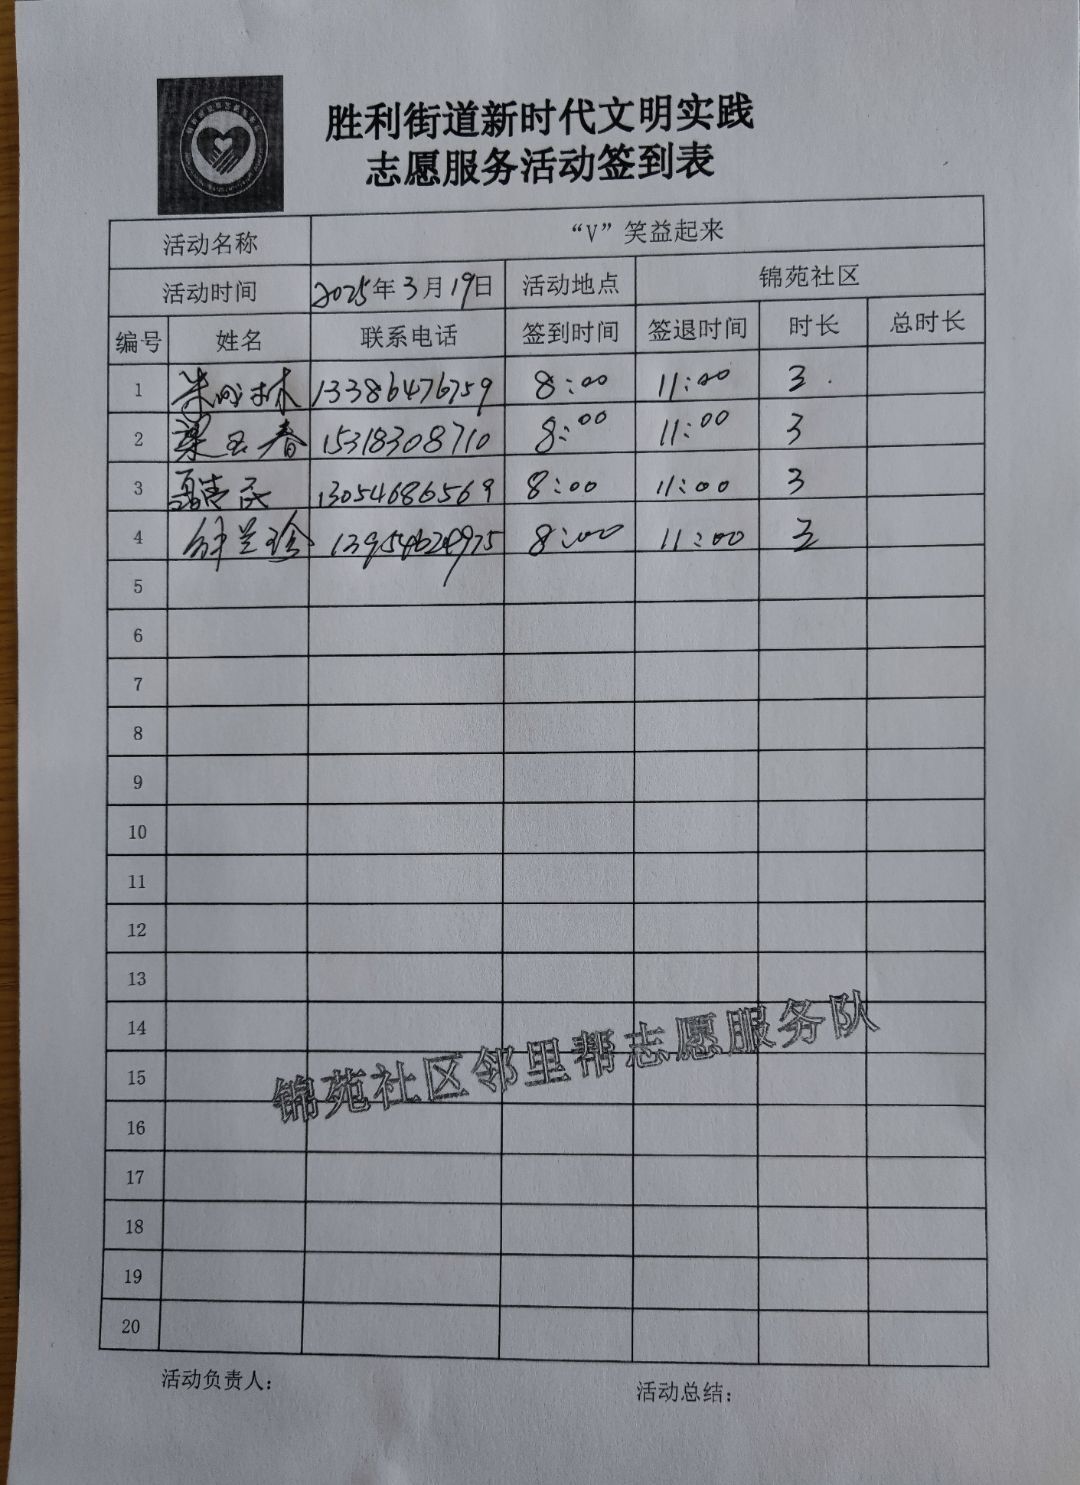 胜利街道新时代文明实践
志愿服务活动签到表
活动名称 “V”笑益起来
活动时间 2025年3月19日 活动地点 锦苑社区
编号 姓名 联系电话 签到时间 签退时间 时长 总时长
1 13386476759 8:00 11:00 3
2 梁玉春 15318308710 8:00 11:00 3
3 13054686569 8:00 11:00 3
4 钟兰珍 8:00 11:00 3
5
6
7
8
9
10
11
12
13
14
15
16
17
18
19
20
锦苑社区邻里帮志愿服务队
活动负责人: 活动总结: